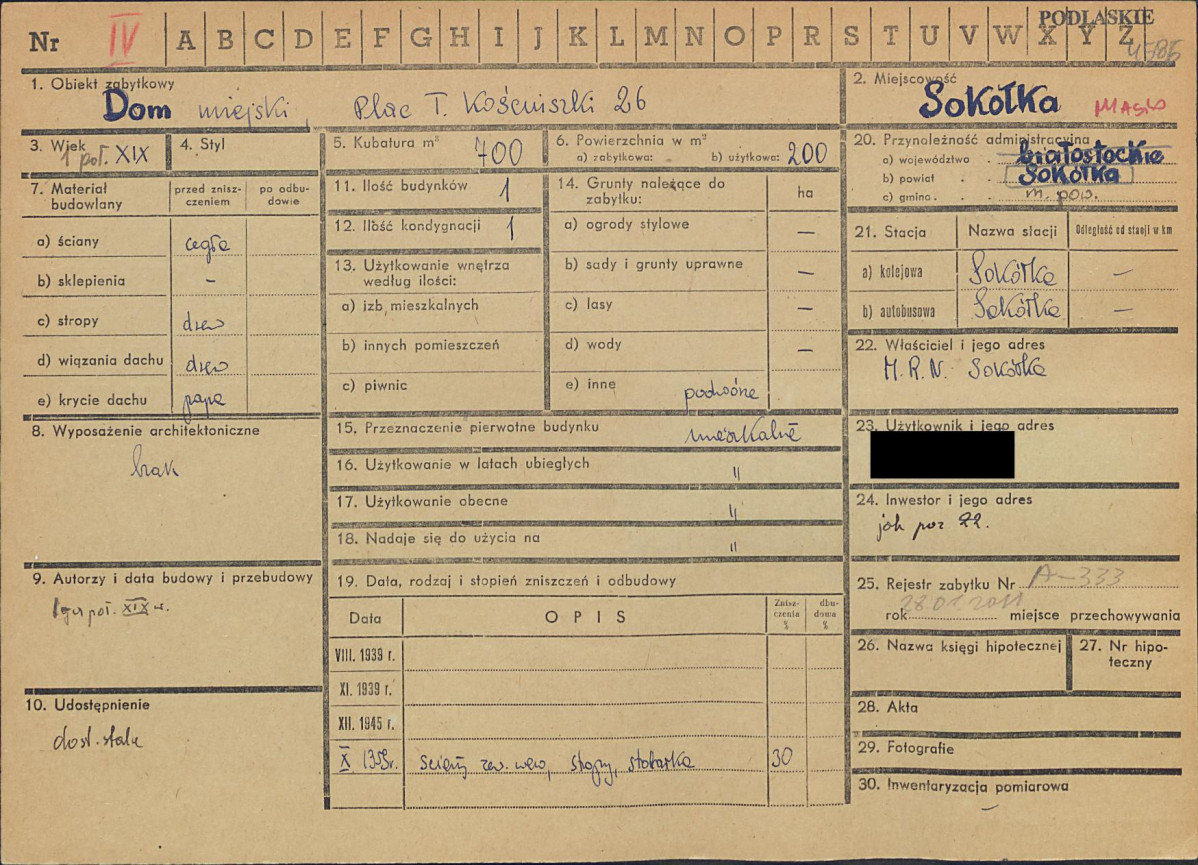 PODLASKIE
Nr IV A B C D E F G H I J K L M N O P R S T U V W X Y Z
1. Obiekt zabytkowy
Dom miejski, Plac T. Kościuszki 26
2. Miejscowość
Sokółka
3. Wiek 1 poł. XIX
4. Styl
5. Kubatura m³ 700
6. Powierzchnia w m²
a) zabytkowa: b) użytkowa: 200
20. Przynależność administracyjna
a) województwo białostockie
b) powiat Sokółka
c) gmina m. pow.
7. Materiał budowlany
przed zniszczeniem
po odbudowie
a) ściany cegła
b) sklepienia –
c) stropy drew
d) wiązania dachu drew
e) krycie dachu papa
11. Ilość budynków 1
12. Ilość kondygnacji 1
13. Użytkowanie wnętrza
według ilości:
a) izb mieszkalnych
b) innych pomieszczeń
c) piwnic
14. Grunty należące do
zabytku: ha
a) ogrody stylowe –
b) sady i grunty uprawne –
c) lasy –
d) wody –
e) inne podwórze
21. Stacja Nazwa stacji Odległość od stacji w km
a) kolejowa Sokółka –
b) autobusowa Sokółka –
22. Właściciel i jego adres
M.R.N. Sokółka
8. Wyposażenie architektoniczne
brak
15. Przeznaczenie pierwotne budynku mieszkalne
16. Użytkowanie w latach ubiegłych "
17. Użytkowanie obecne "
18. Nadaje się do użycia na "
23. Użytkownik i jego adres
24. Inwestor i jego adres
jak poz 22.
9. Autorzy i data budowy i przebudowy
poł. XIX w.
10. Udostępnienie
dost. stale
19. Data, rodzaj i stopień zniszczeń i odbudowy
Data OPIS Zniszczenia % dbudowa %
VIII. 1939 r.
XI. 1939 r.
XII. 1945 r.
X 1959r. ściany zew. wew, stropy, stolarka 30
25. Rejestr zabytku Nr A-333
rok 28.01.2011 miejsce przechowywania
26. Nazwa księgi hipotecznej
27. Nr hipoteczny
28. Akta
29. Fotografie
30. Inwentaryzacja pomiarowa
–